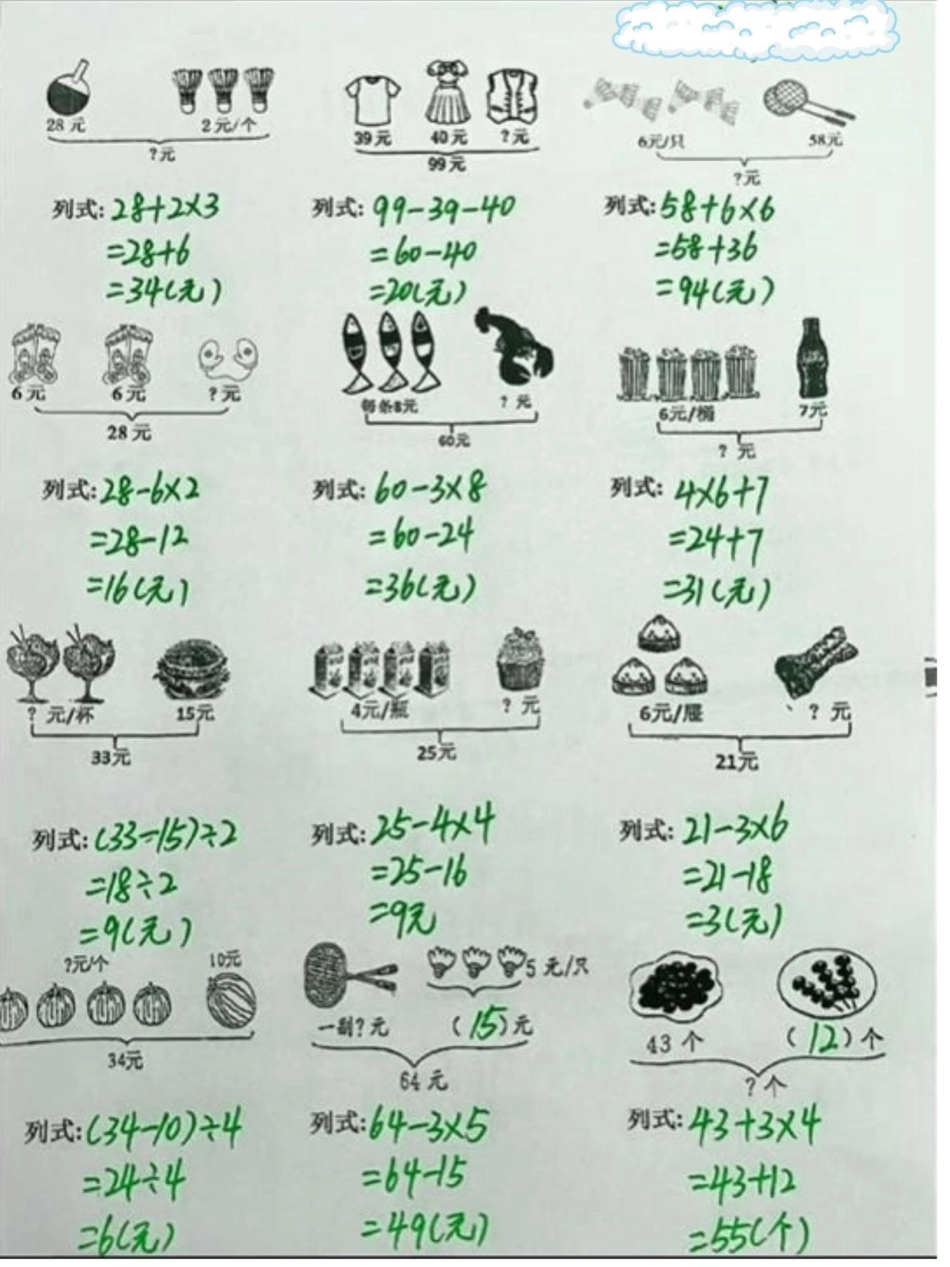 28元 2元/个
?元
39元 40元 ?元
99元
6元/只 58元
?元
列式: 28+2×3
=28+6
=34(元)
列式: 99-39-40
=60-40
=20(元)
列式: 58+6×6
=58+36
=94(元)
6元 6元 ?元
28元
每条8元 ?元
60元
6元/桶 7元
?元
列式: 28-6×2
=28-12
=16(元)
列式: 60-3×8
=60-24
=36(元)
列式: 4×6+7
=24+7
=31(元)
?元/杯 15元
33元
4元/瓶 ?元
25元
6元/屉 ?元
21元
列式: (33-15)÷2
=18÷2
=9(元)
列式: 25-4×4
=25-16
=9元
列式: 21-3×6
=21-18
=3(元)
?元/个 10元
34元
5元/只
一副?元 (15)元
64元
43个 (12)个
?个
列式: (34-10)÷4
=24÷4
=6(元)
列式: 64-3×5
=64-15
=49(元)
列式: 43+3×4
=43+12
=55(个)